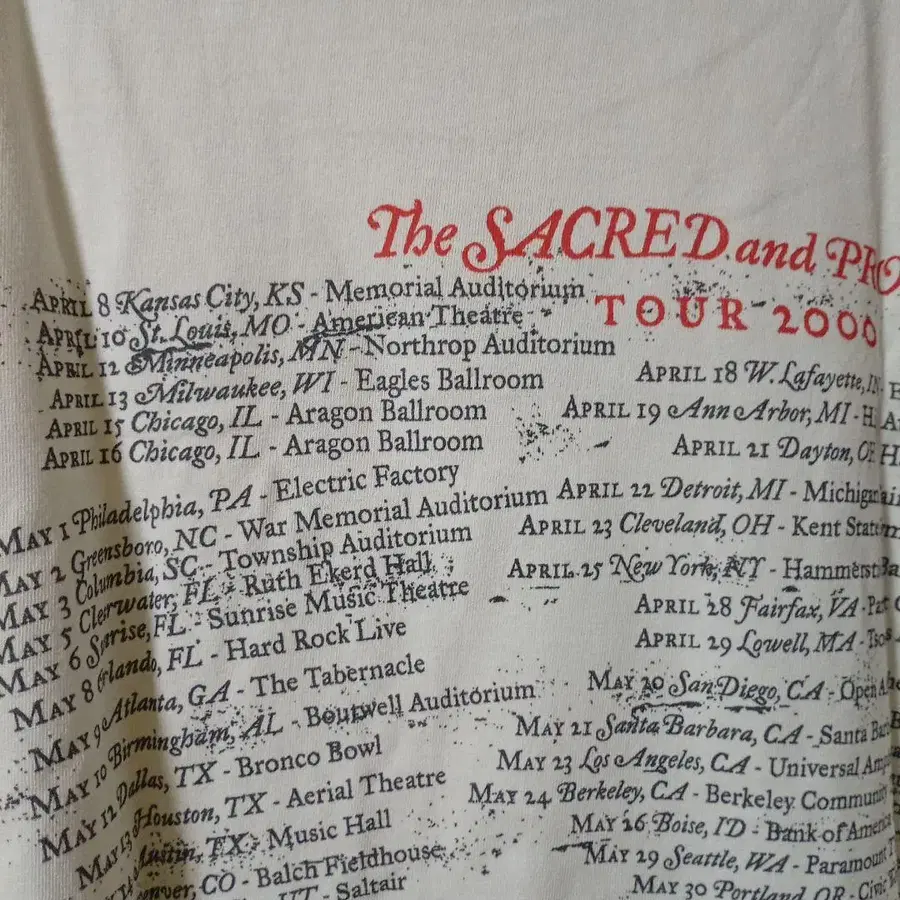 The SACRED and
TOUR 2000
APRIL 8 Kansas City, KS - Memorial Auditorium
APRIL 10 St. Louis, MO - American Theatre
APRIL 12 Minneapolis, MN - Northrop Auditorium
APRIL 13 Milwaukee, WI - Eagles Ballroom
APRIL 15 Chicago, IL - Aragon Ballroom
APRIL 16 Chicago, IL - Aragon Ballroom
MAY 1 Philadelphia, PA - Electric Factory
MAY 2 Greensboro, NC - War Memorial Auditorium
MAY 3 Columbia, SC - Township Auditorium
MAY 5 Clearwater, FL - Ruth Ekerd Hall
MAY 6 Sunrise, FL - Sunrise Music Theatre
MAY 8 Orlando, FL - Hard Rock Live
MAY 9 Atlanta, GA - The Tabernacle
MAY 10 Birmingham, AL - Boutwell Auditorium
MAY 12 Dallas, TX - Bronco Bowl
MAY 13 Houston, TX - Aerial Theatre
Austin, TX - Music Hall
CO - Balch Fieldhouse
UT - Saltair
APRIL 18 W. Lafayette, IN
APRIL 19 Ann Arbor, MI -
APRIL 21 Dayton, OH
APRIL 22 Detroit, MI -
APRIL 23 Cleveland, OH - Kent
APRIL 25 New York, NY -
APRIL 28 Fairfax, VA -
APRIL 29 Lowell, MA -
MAY 20 San Diego, CA - Open
MAY 21 Santa Barbara, CA - Santa
MAY 23 Los Angeles, CA - Universal
MAY 24 Berkeley, CA - Berkeley
MAY 26 Boise, ID - Bank of
MAY 29 Seattle, WA - Paramount
MAY 30 Portland, OR -